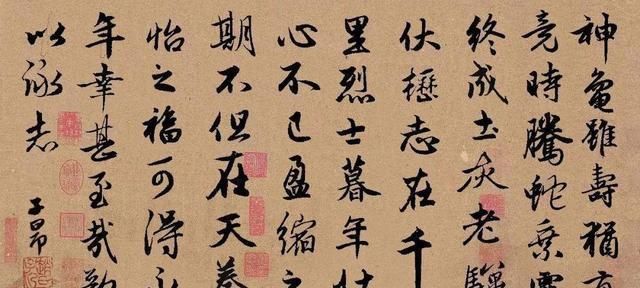 神龜雖壽猶有
竟時騰蛇乘雲
終成土灰老驥
伏櫪志在千
里烈士暮年壯
心不已盈縮之
期不但在天養
怡之福可得永
年幸甚至哉歌
以詠志
子昂